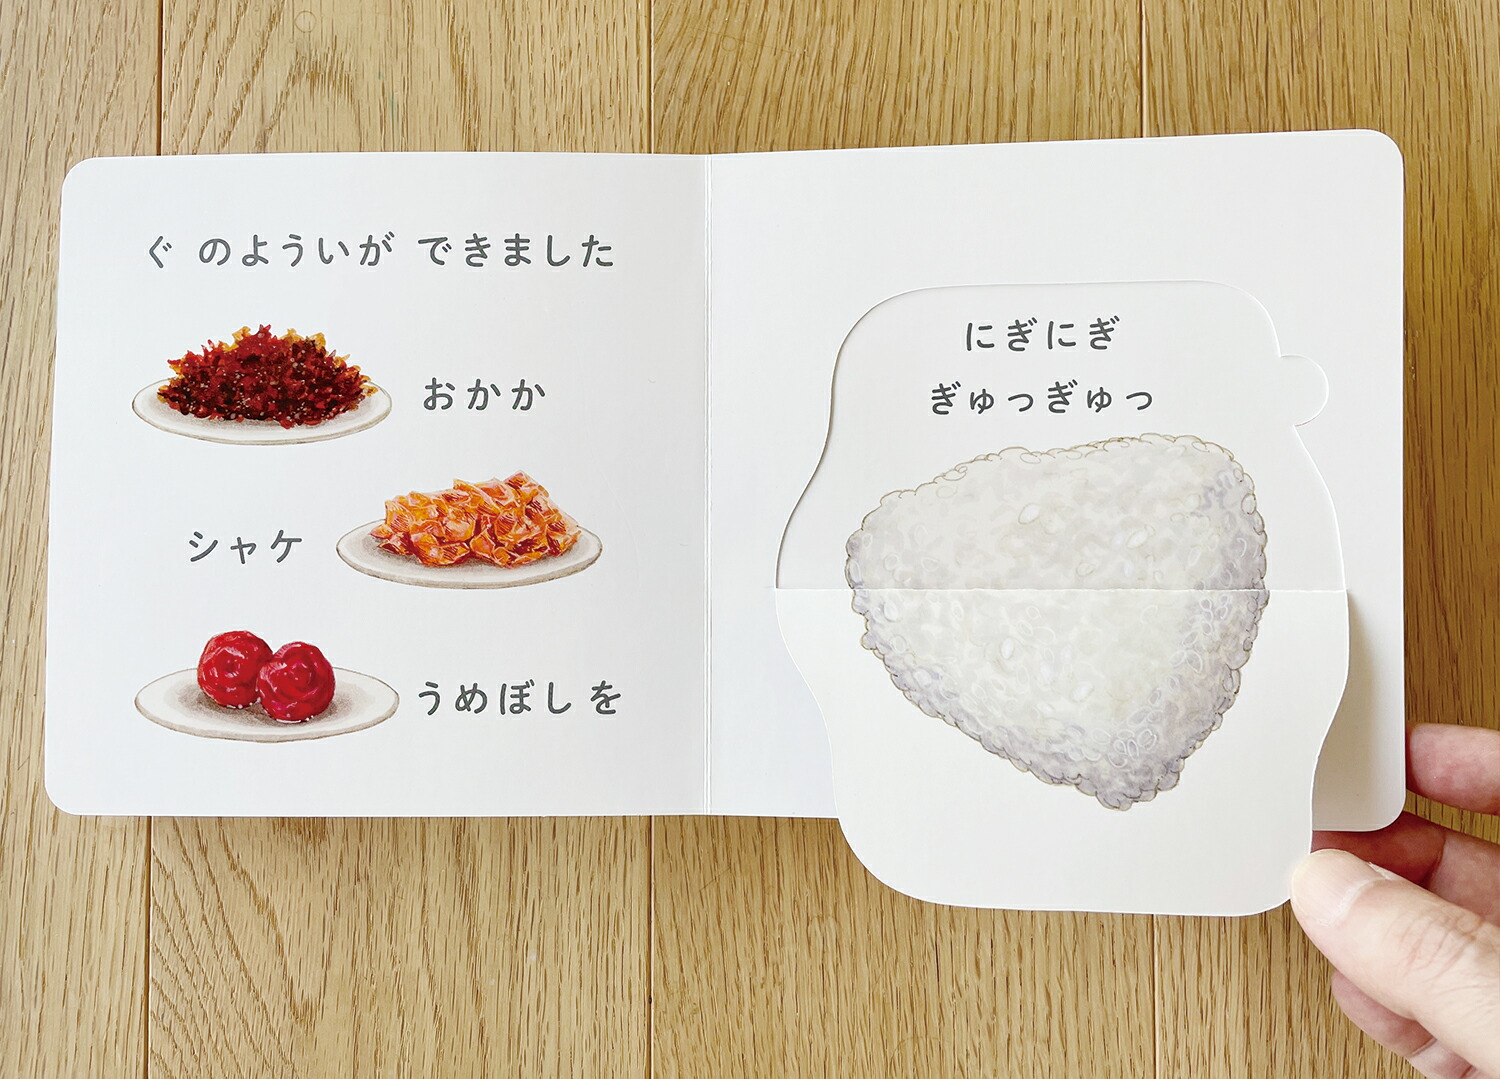 ぐ のよういが できました
おかか
シャケ
うめぼしを
にぎにぎ
ぎゅっぎゅっ